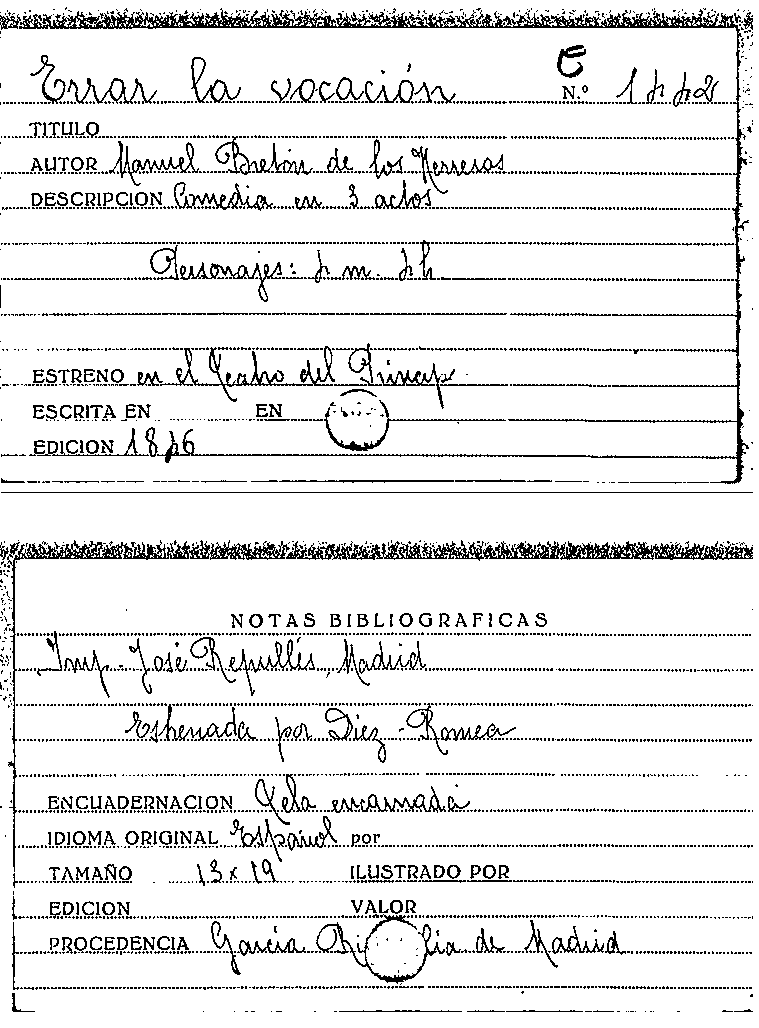 E
Errar la vocación N.º 1442
TITULO
AUTOR Manuel Bretón de los Herreros
DESCRIPCION Comedia en 3 actos
Personajes: 4 m. 4 h.
ESTRENO en el Teatro del Princip
ESCRITA EN EN
EDICION 1846
NOTAS BIBLIOGRAFICAS
Imp. José Repullés, Madrid
Estrenada por Diez-Romea
ENCUADERNACION Tela encarnada
IDIOMA ORIGINAL Español por
TAMAÑO 13 x 19 ILUSTRADO POR
EDICION VALOR
PROCEDENCIA García de Madrid